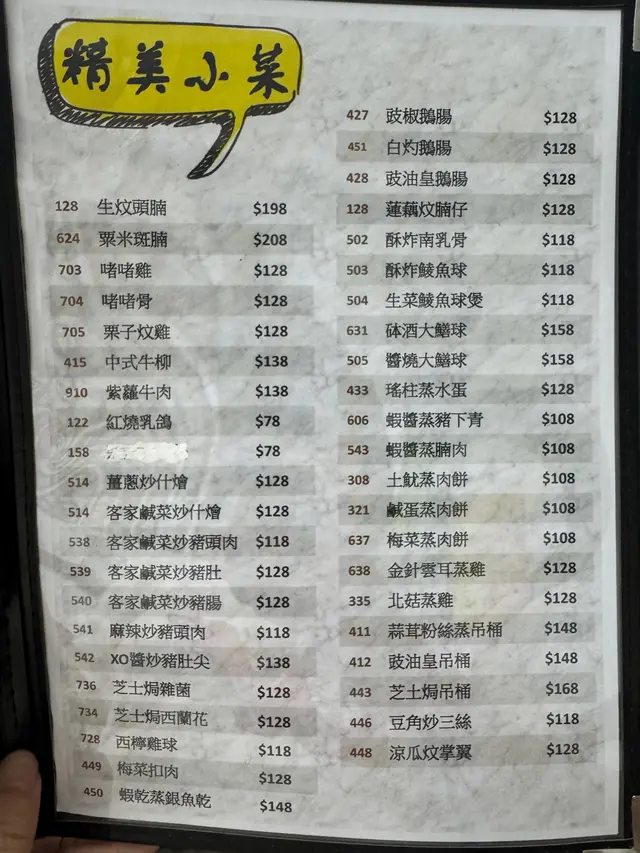 精美小菜
128 生炆頭腩 $198
624 粟米斑腩 $208
703 啫啫雞 $128
704 啫啫骨 $128
705 栗子炆雞 $128
415 中式牛柳 $138
910 紫蘿牛肉 $138
122 紅燒乳鴿 $78
158 $78
514 薑蔥炒什燴 $128
514 客家鹹菜炒什燴 $128
538 客家鹹菜炒豬頭肉 $118
539 客家鹹菜炒豬肚 $128
540 客家鹹菜炒豬腸 $128
541 麻辣炒豬頭肉 $118
542 XO醬炒豬肚尖 $138
736 芝士焗雜菌 $128
734 芝士焗西蘭花 $128
728 西檸雞球 $118
449 梅菜扣肉 $128
450 蝦乾蒸銀魚乾 $148
427 豉椒鵝腸 $128
451 白灼鵝腸 $128
428 豉油皇鵝腸 $128
128 蓮藕炆腩仔 $128
502 酥炸南乳骨 $118
503 酥炸鯪魚球 $118
504 生菜鯪魚球煲 $118
631 砵酒大鱔球 $158
505 醬燒大鱔球 $158
433 瑤柱蒸水蛋 $128
606 蝦醬蒸豬下青 $108
543 蝦醬蒸腩肉 $108
308 土魷蒸肉餅 $108
321 鹹蛋蒸肉餅 $108
637 梅菜蒸肉餅 $108
638 金針雲耳蒸雞 $128
335 北菇蒸雞 $128
411 蒜茸粉絲蒸吊桶 $148
412 豉油皇吊桶 $148
443 芝士焗吊桶 $168
446 豆角炒三絲 $118
448 涼瓜炆掌翼 $128